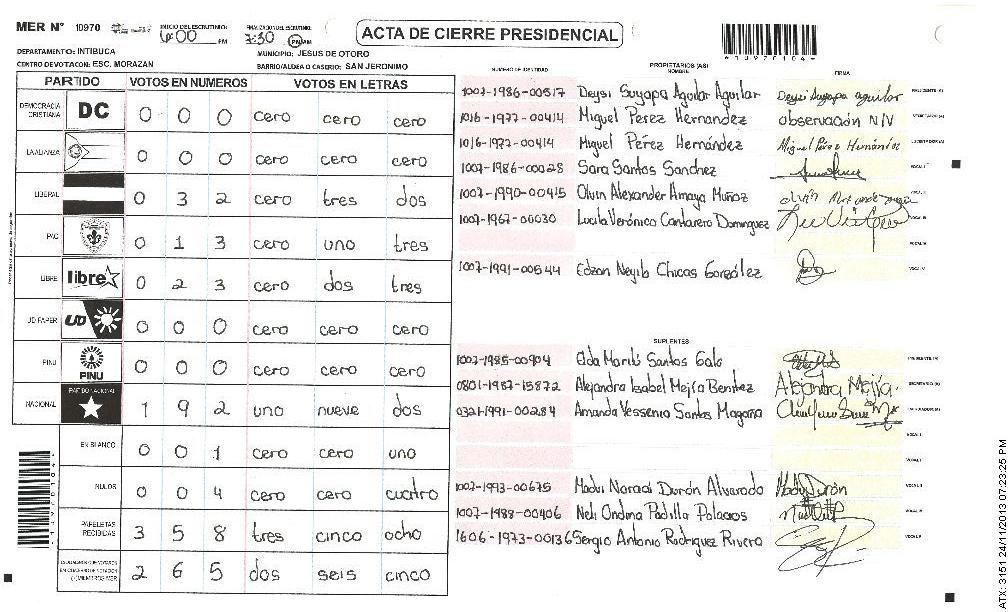 MER N° 10970 INICIO DEL ESCRUTINIO: 6:00 PM FINALIZACION DEL ESCRUTINIO: 7:30 PM
ACTA DE CIERRE PRESIDENCIAL
DEPARTAMENTO: INTIBUCA MUNICIPIO: JESUS DE OTORO
CENTRO DE VOTACION: ESC. MORAZAN BARRIO/ALDEA O CASERIO: SAN JERONIMO
PARTIDO VOTOS EN NUMEROS VOTOS EN LETRAS
DEMOCRACIA CRISTIANA DC 0 0 0 cero cero cero
LA ALIANZA 0 0 0 cero cero cero
LIBERAL 0 3 2 cero tres dos
PAC 0 1 3 cero uno tres
LIBRE libre 0 2 3 cero dos tres
UD FAPER UD 0 0 0 cero cero cero
PINU PINU 0 0 0 cero cero cero
NACIONAL PARTIDO NACIONAL 1 9 2 uno nueve dos
EN BLANCO 0 0 1 cero cero uno
NULOS 0 0 4 cero cero cuatro
PAPELETAS RECIBIDAS 3 5 8 tres cinco ocho
2 6 5 dos seis cinco
NUMERO DE IDENTIDAD PROPIETARIOS (AS) NOMBRE FIRMA
1007-1986-00517 Deysi Suyapa Aguilar Aguilar Deysi Suyapa aguilar PRESIDENTE (A)
1016-1977-00414 Miguel Perez Hernandez observación N/V SECRETARIO (A)
1016-1977-00414 Miguel Pérez Hernández Miguel Pérez Hernández ESCRUTADOR (A)
1007-1986-00028 Sara Santos Sanchez VOCAL I
1007-1990-00415 Olvin Alexander Amaya Muñoz VOCAL II
1007-1967-00030 Lucila Verónica Cantarero Dominguez VOCAL III
VOCAL IV
1007-1991-00544 Edzon Neyib Chicas González VOCAL V
SUPLENTES
1007-1985-00904 Elda Marilú Santos Galo PRESIDENTE (A)
0801-1957-15872 Alejandra Isabel Mejía Benitez Alejandra Mejía. SECRETARIO (A)
0321-1991-00284 Amanda Yessenia Santos Magaña ESCRUTADOR (A)
VOCAL I
VOCAL II
1007-1993-00675 Madui Noradi Durón Alvarado Mady Durón VOCAL III
1007-1988-00406 Neli Ondina Padilla Palacios VOCAL IV
1606-1973-00136 Sergio Antonio Rodriguez Rivera VOCAL V
ATX: 3151 24/11/2013 07:23:25 PM